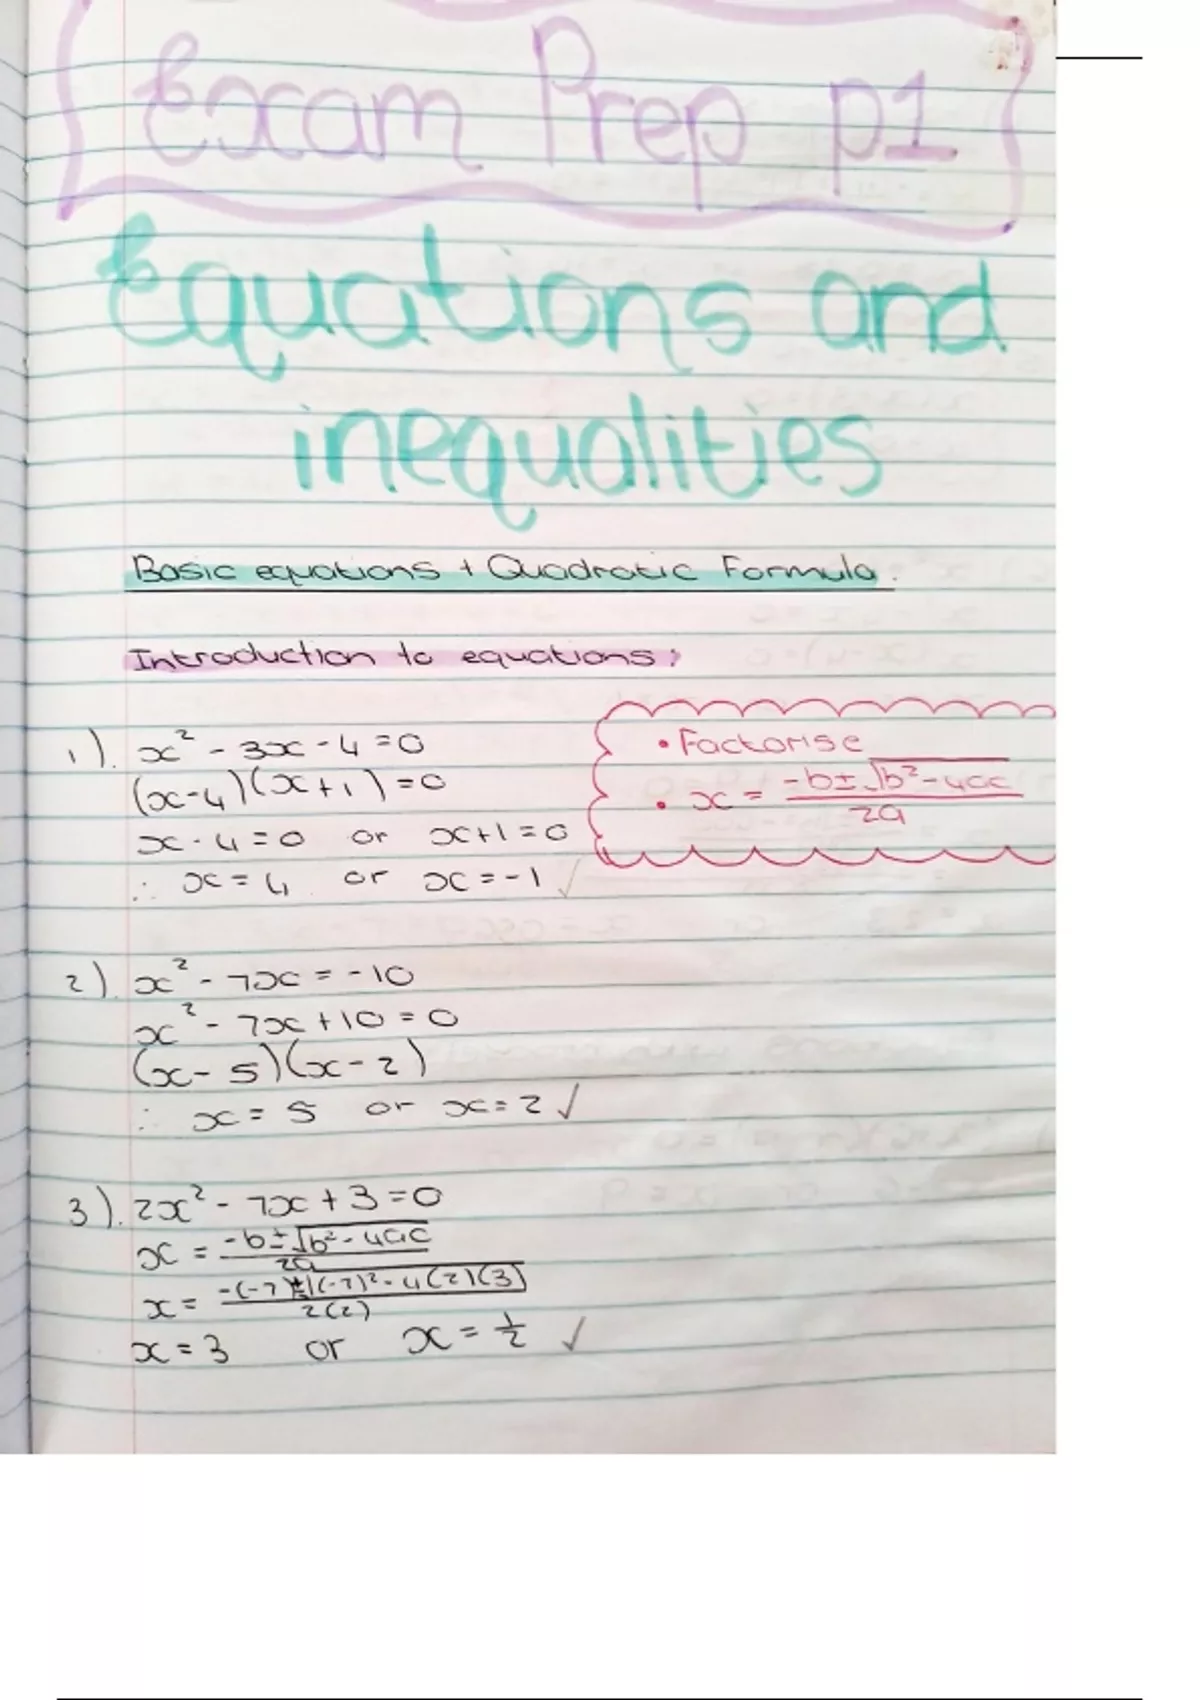 Exam Prep p1
Equations and
inequalities
Basic equations + Quadratic Formula.
Introduction to equations:
1). x² - 3x - 4 = 0
(x-4)(x+1) = 0
x - 4 = 0 or x+1 = 0
∴ x = 4 or x = -1 ✓
• Factorise
• x = (-b ± √(b² - 4ac)) / 2a
2). x² - 7x = -10
x² - 7x + 10 = 0
(x - 5)(x - 2)
∴ x = 5 or x = 2 ✓
3). 2x² - 7x + 3 = 0
x = (-b ± √(b² - 4ac)) / 2a
x = (-(-7) ± √((-7)² - 4(2)(3))) / 2(2)
x = 3 or x = 1/2 ✓